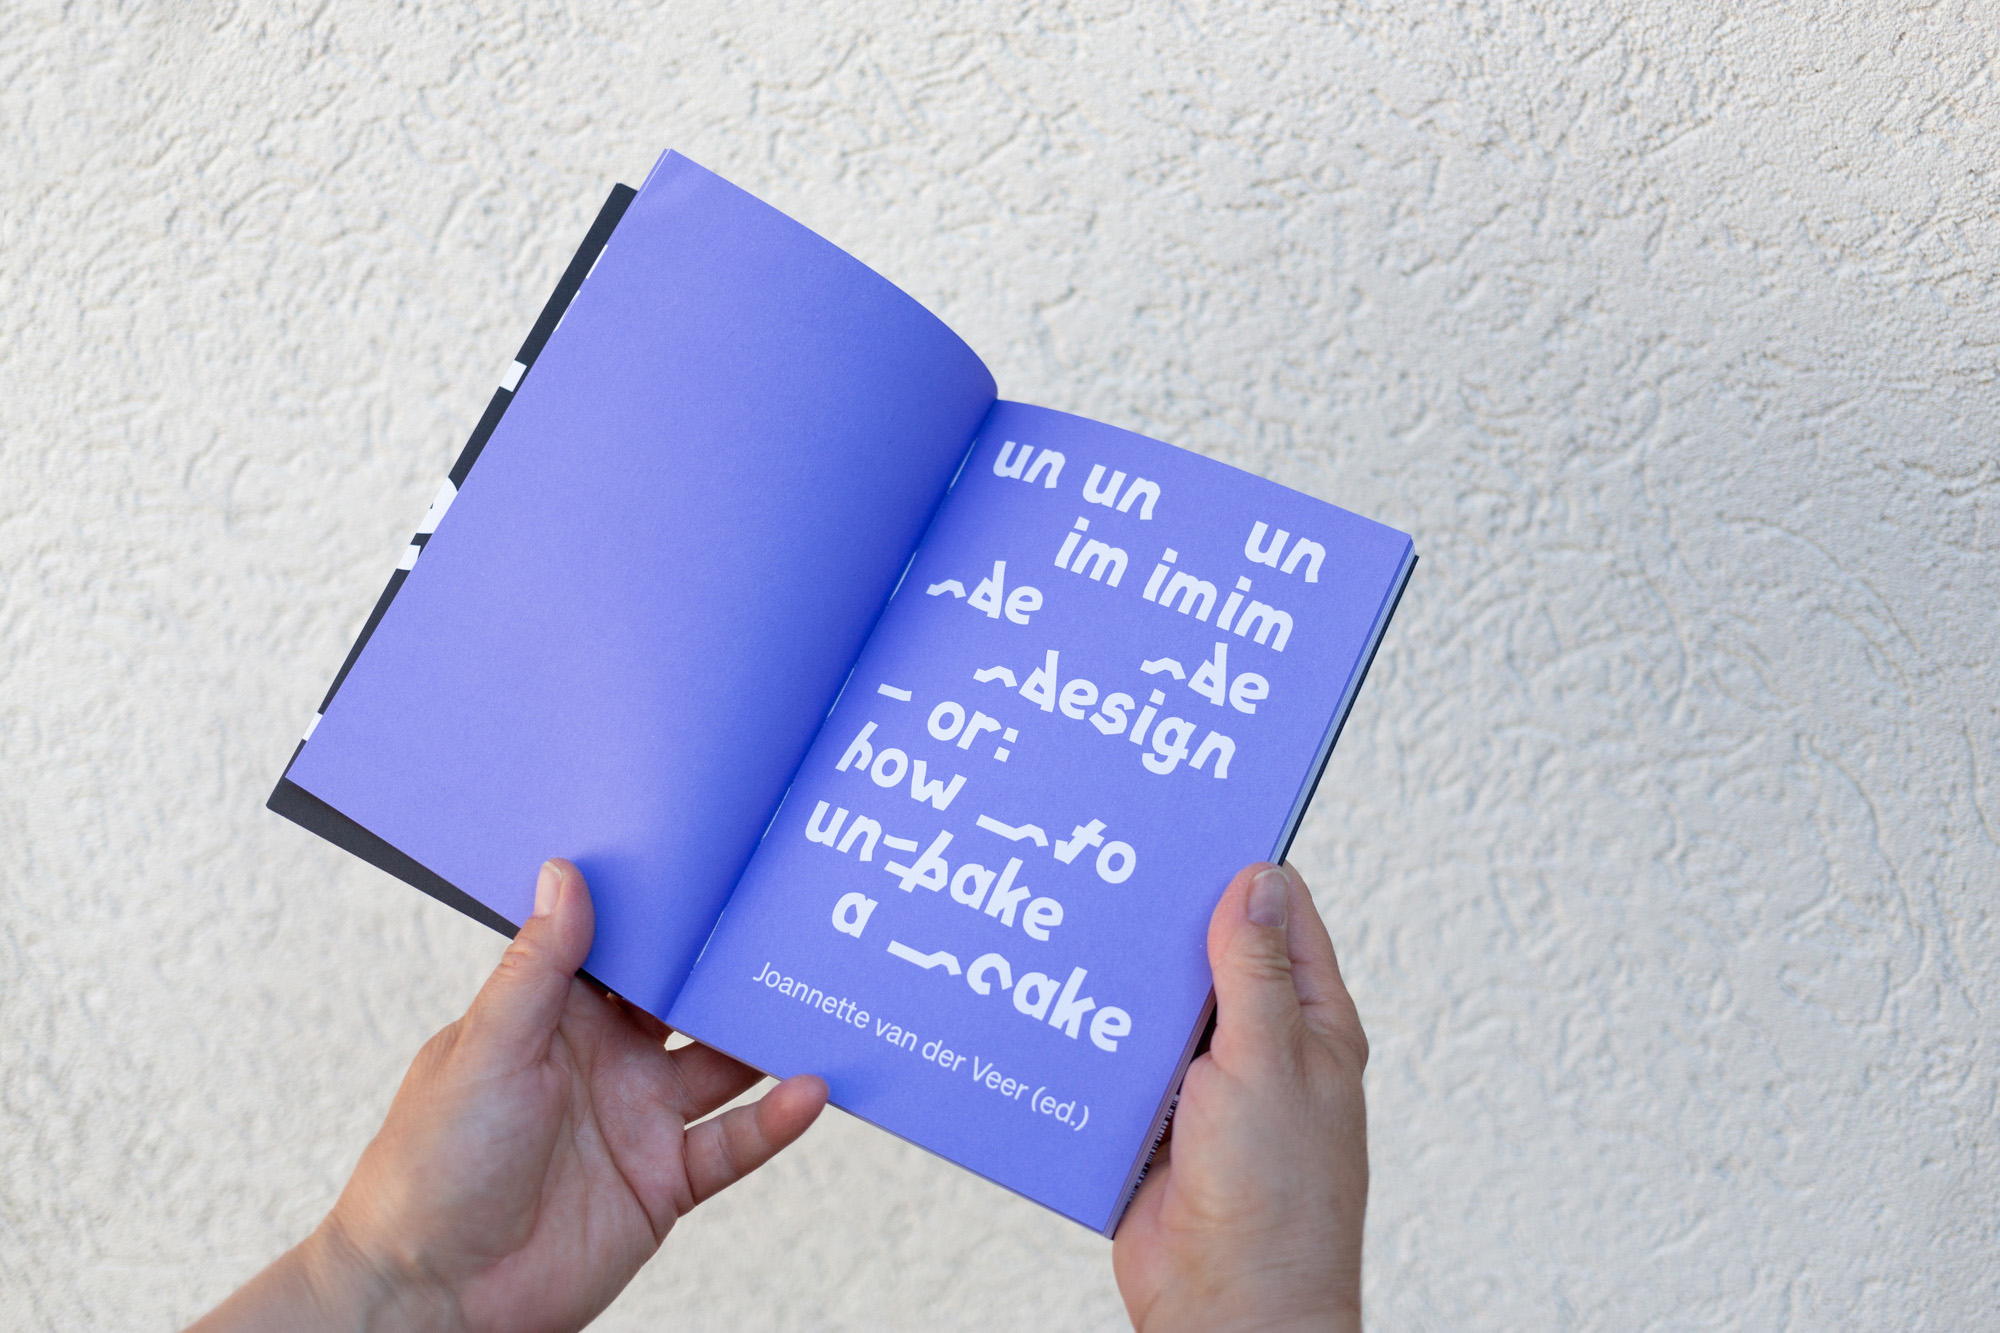 un un un
im imim
de de
design
– or:
how to
un=bake
a cake
Joannette van der Veer (ed.)